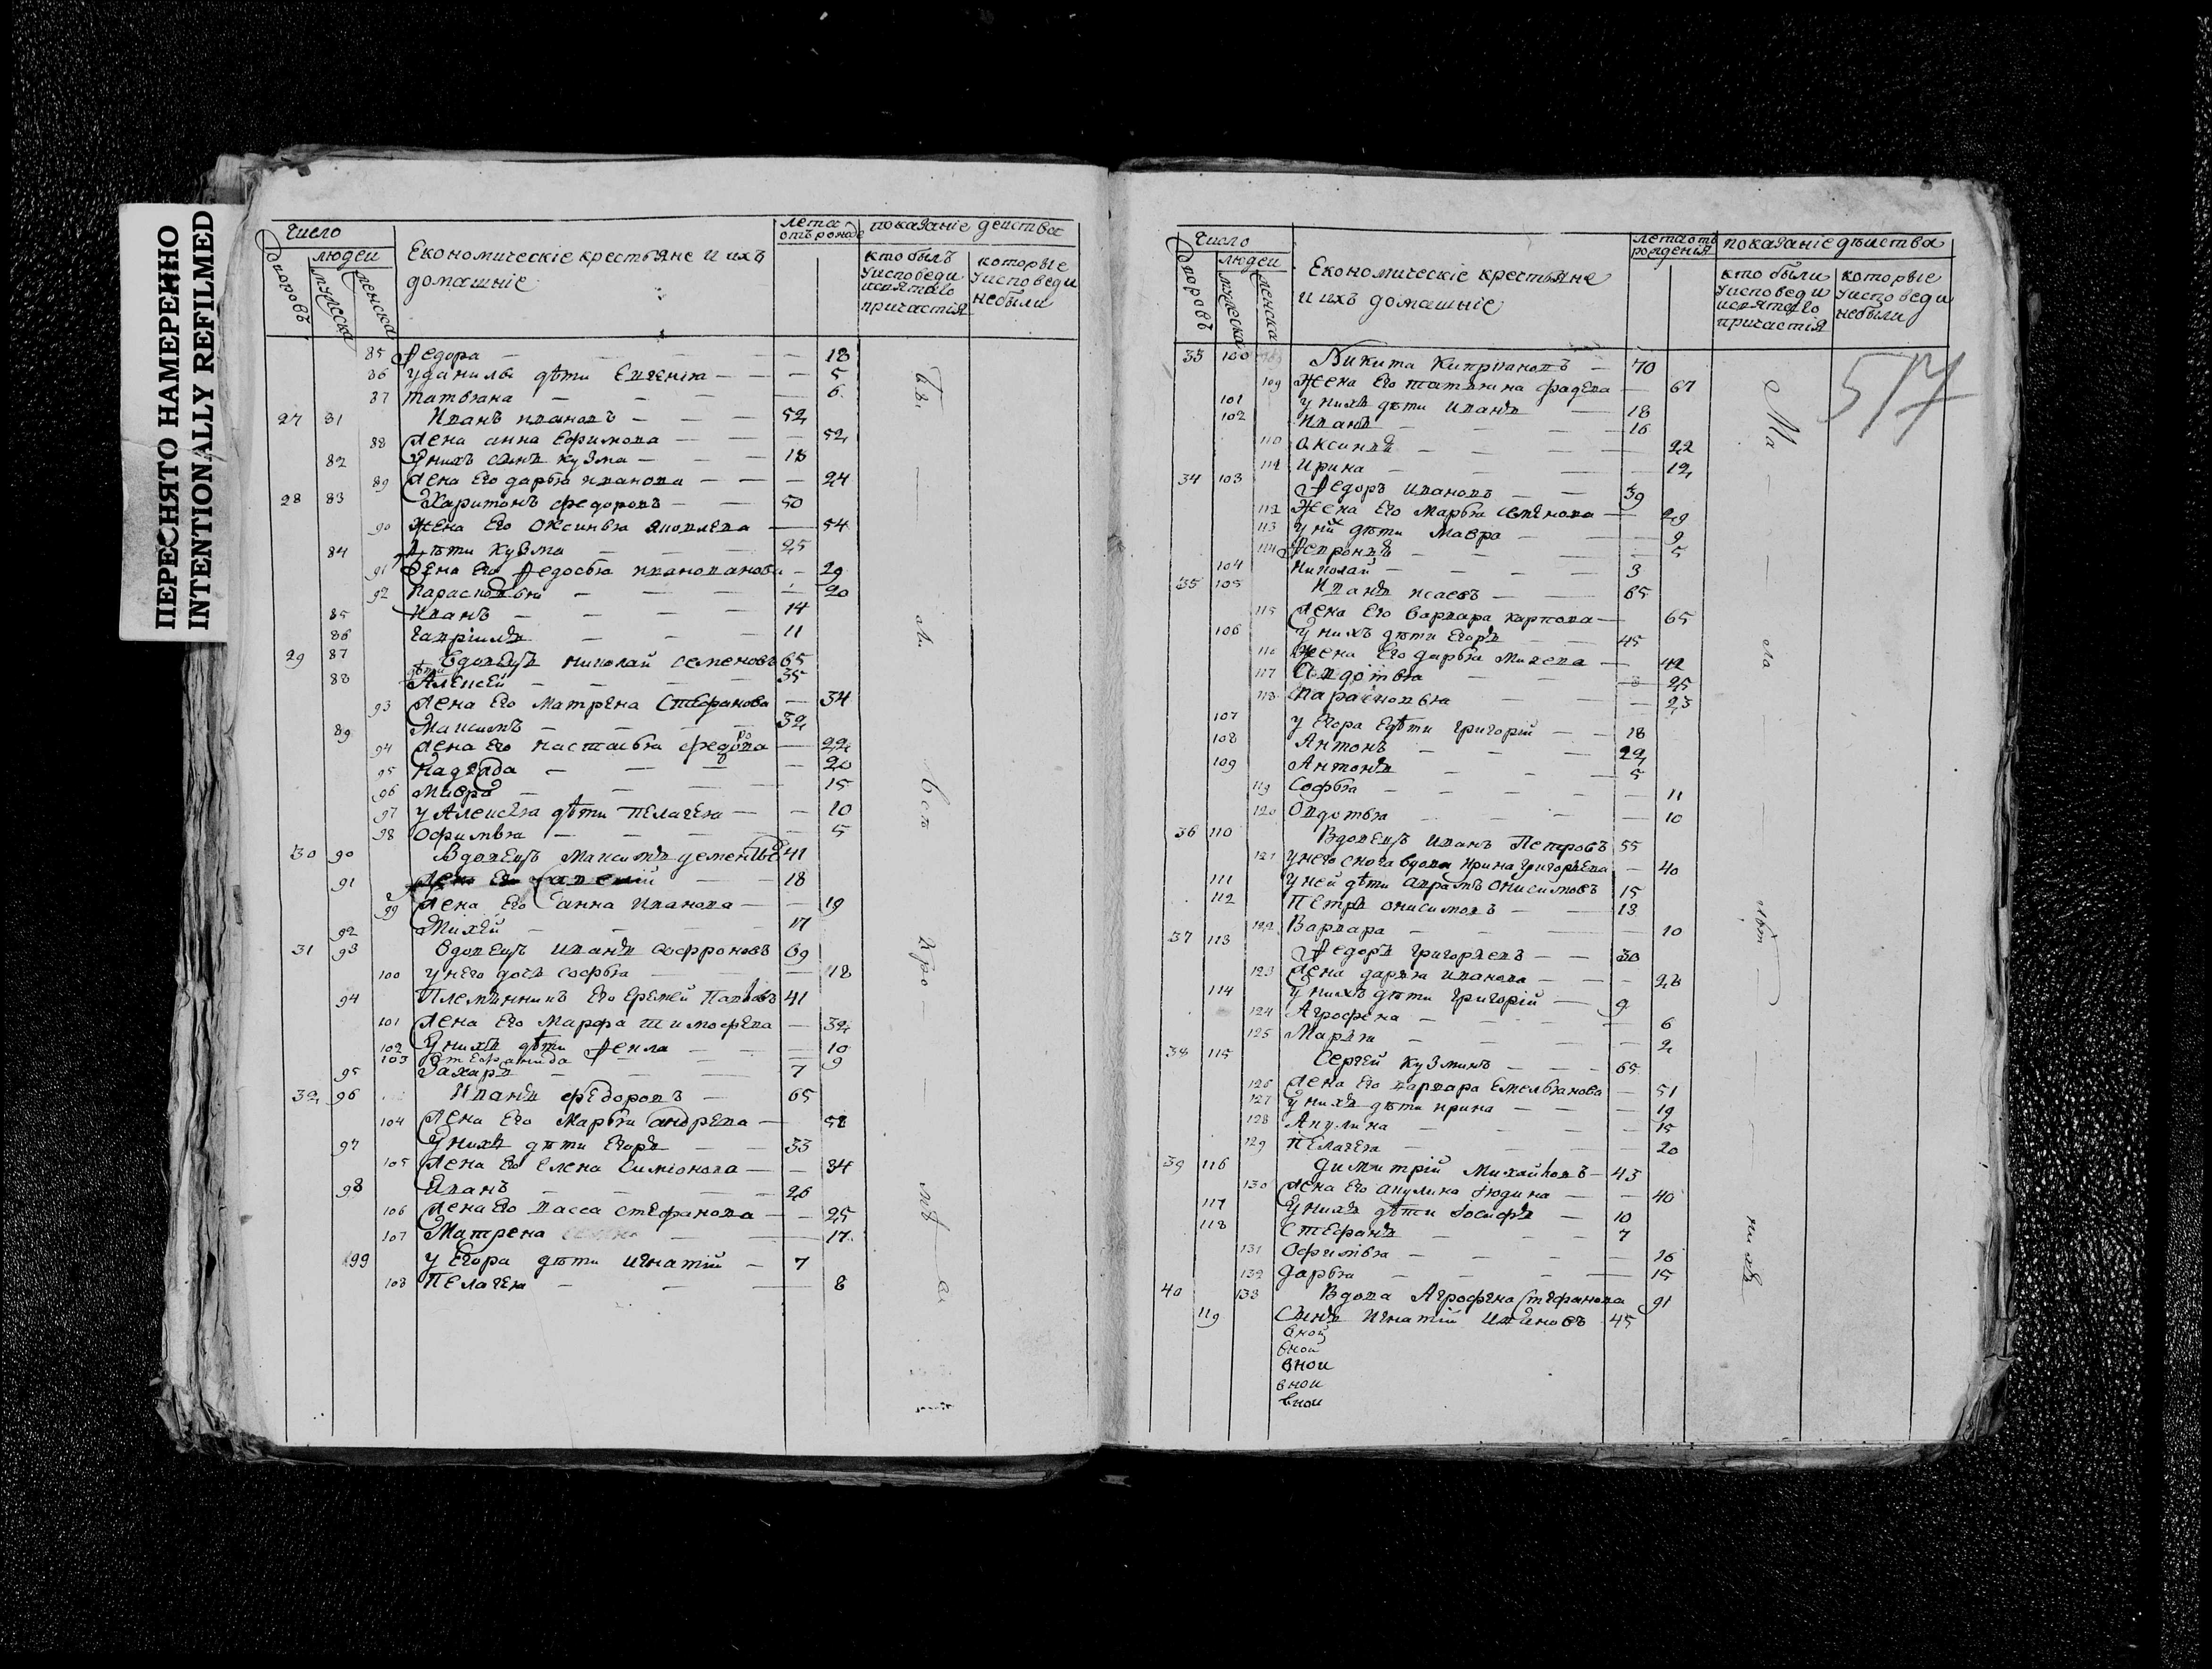 ПЕРЕСНЯТО НАМЕРЕННО
INTENTIONALLY REFILMED
число
людей
дворовъ
мужеска
женска
Економическіе крестьяне и ихъ
домашніе
лета
отъ рожде
показаніе действа
кто былъ
у исповеди
и святаго
причастія
которые
у исповеди
небыли
85 Федора — 18
86 у данилы дѣти Евгенія — 5
87 татьяна — 6
27 81 Иванъ ивановъ — 52
88 жена анна Ефимова — 52
82 У нихъ сынъ кузма — 18
89 жена Его дарья иванова — 24
28 83 Харитонъ федоровъ — 50
90 жена Его Оксинья — 54
84 дѣти кузма — 25
91 жена Его Федосья — 29
92 Парасковья — 20
85 Иванъ — 14
86 Гаврiилъ — 11
29 87 Вдовецъ николай семеновъ 65
88 дѣти Алексей — 35
93 жена Его матрена Стефанова — 34
89 Максимъ — 32
94 жена Его настасья федорова — 22
95 Надежда — 20
96 Мавра — 15
97 у Алексея дѣти Пелагея — 10
98 Офимья — 5
30 90 Вдовецъ Максимъ дементьевъ 41
91 — 18
99 жена Его анна Иванова — 19
92 Михей — 17
31 93 Вдовецъ иванъ Софроновъ 69
100 у него дочь софья — 18
94 Племянникъ Его Еремей Павловъ 41
101 жена Его Марфа тимофева — 32
102 У нихъ дѣти Фекла — 10
103 Стефанида — 9
95 Захаръ — 7
32 96 Иванъ федоровъ — 65
104 жена Его Марья андрева — 58
97 У нихъ дѣти Егоръ — 33
105 жена Его Елена Симiонова — 34
98 Иванъ — 26
106 жена Его васса стефанова — 25
107 Матрена — 17
99 у Егора дѣти игнатiй — 7
108 Пелагея — 8
Бы
ли
всѣ
про
число
людей
дворовъ
мужеска
женска
Економическіе крестьяне
и ихъ домашніе
лета отъ
рожденія
показаніе дѣйства
кто были
у исповеди
и святаго
причастія
которые
у исповеди
небыли
517
33 100 Никита Киприановъ — 70
109 жена Его татьяна фадева — 67
101 у нихъ дѣти иванъ — 18
102 иванъ — 16
110 аксинья — 22
111 Ирина — 12
34 103 Федоръ ивановъ — 39
112 жена Его Марья семенова — 29
113 у нихъ дѣти Мавра — 9
114 Февронья — 5
104 Николай — 3
35 105 Иванъ исаевъ — 65
115 жена Его варвара карпова — 65
106 у нихъ дѣти Егоръ — 45
116 жена Его дарья михева — 42
117 Авдотья — 25
118 Парасковья — 23
107 у Егора дѣти григорiй — 18
108 Антонъ — 22
109 Антонъ — 5
119 Софья — 11
120 Овдотья — 10
36 110 Вдовецъ иванъ Петровъ 55
121 у него сноха вдова ирина григорьева — 40
111 у ней дѣти авраамъ онисимовъ 15
112 Петръ онисимовъ — 13
122 Варвара — 10
37 113 Федоръ григорьевъ — 30
123 жена дарья иванова — 28
114 у нихъ дѣти григорiй — 9
124 Агрофена — 6
125 Марья — 2
38 115 Сергей кузминъ — 65
126 жена Его варвара Емельянова — 51
127 у нихъ дѣти ирина — 19
128 Акулина — 15
129 Пелагея — 20
39 116 Димитрiй михайловъ — 43
130 жена Его акулина iюдина — 40
117 У нихъ дѣти iосифъ — 10
118 Стефанъ — 7
131 Офимья — 26
132 дарья — 15
40 133 Вдова Агрофена Стефанова 91
119 Сынъ игнатiй ивановъ 45
Ма
ло
лѣт
нихъ